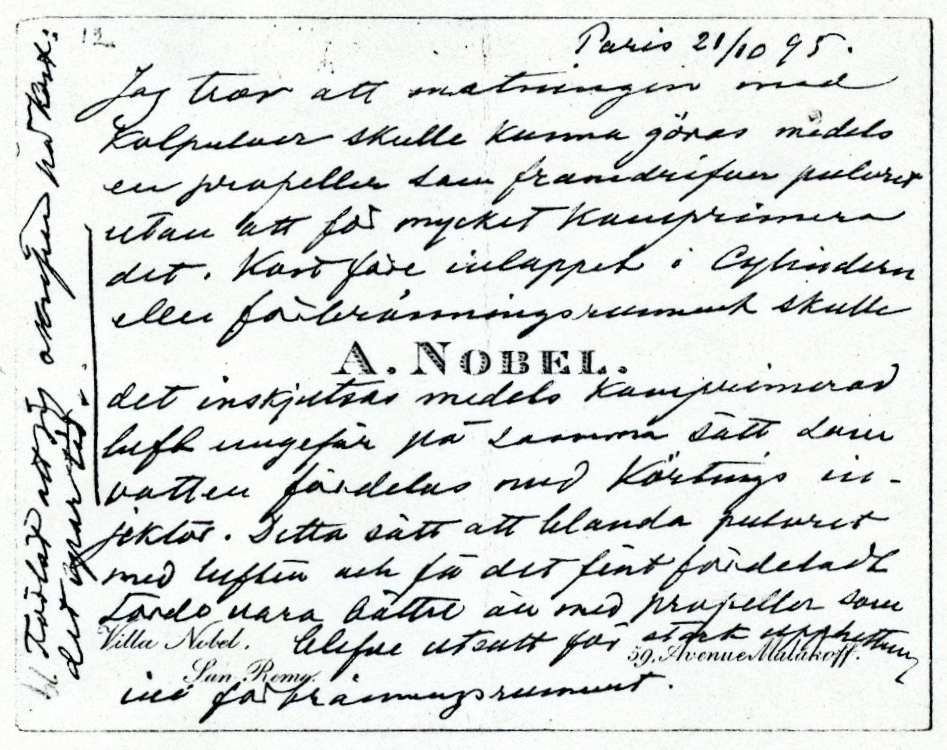 12
Paris 21/10 95.
Jag tror att matningen med
Kolpulver skulle kunna göras medels
en propeller som framdrifver pulvret
utan att för mycket Komprimera
det. Kort före inloppet i Cylindern
eller förbränningsrummet skulle
A. NOBEL.
det inskjutsas medels Komprimerad
luft ungefär på samma sätt som
vatten fördelas med Körtings in-
jektor. Detta sätt att blanda pulvret
med luften och få det fint fördeladt
torde vara bättre än med propeller som
Villa Nobel.
San Remo.
59, Avenue Malakoff.
blefve utsatt för stark upphettning
inne i förbränningsrummet.
Förlåt att jag skrifver på Kort:
det sparar tid.